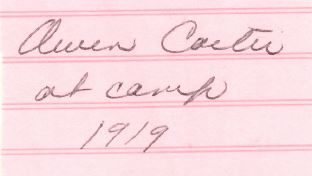 Owen Carter
at camp
1919